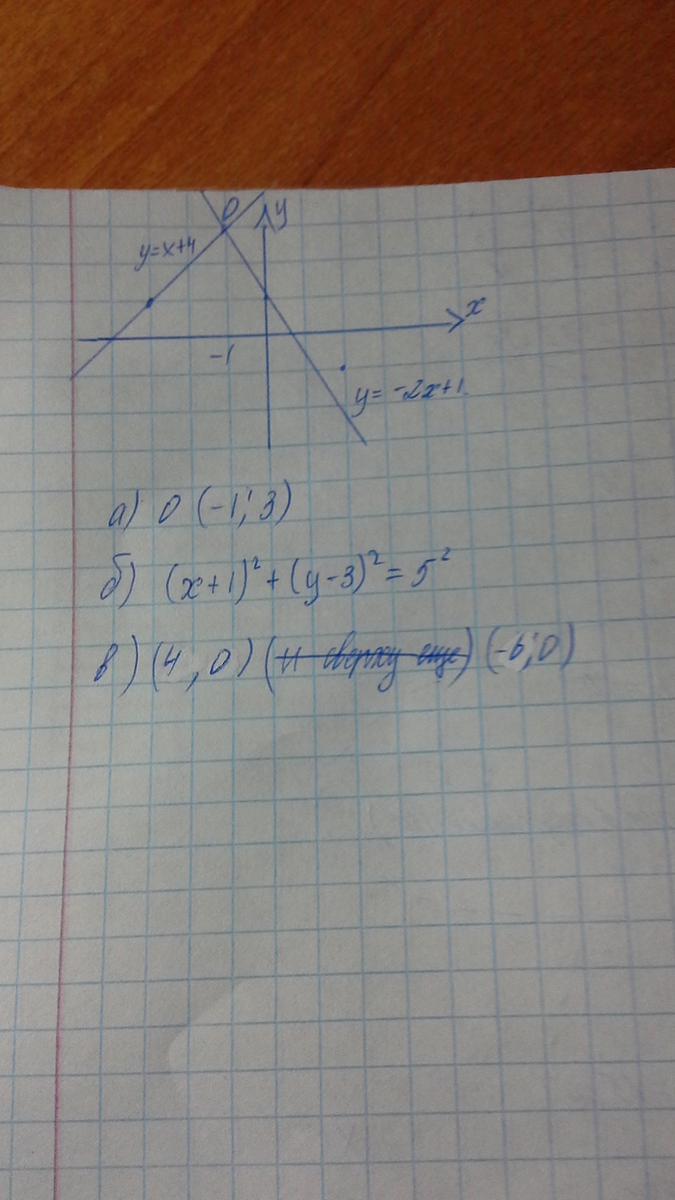 O
y
y=x+4
x
-1
y= -2x+1
а) O (-1; 3)
б) (x+1)²+(y-3)²=5²
в) (4, 0) (и сверху еще) (-6; 0)